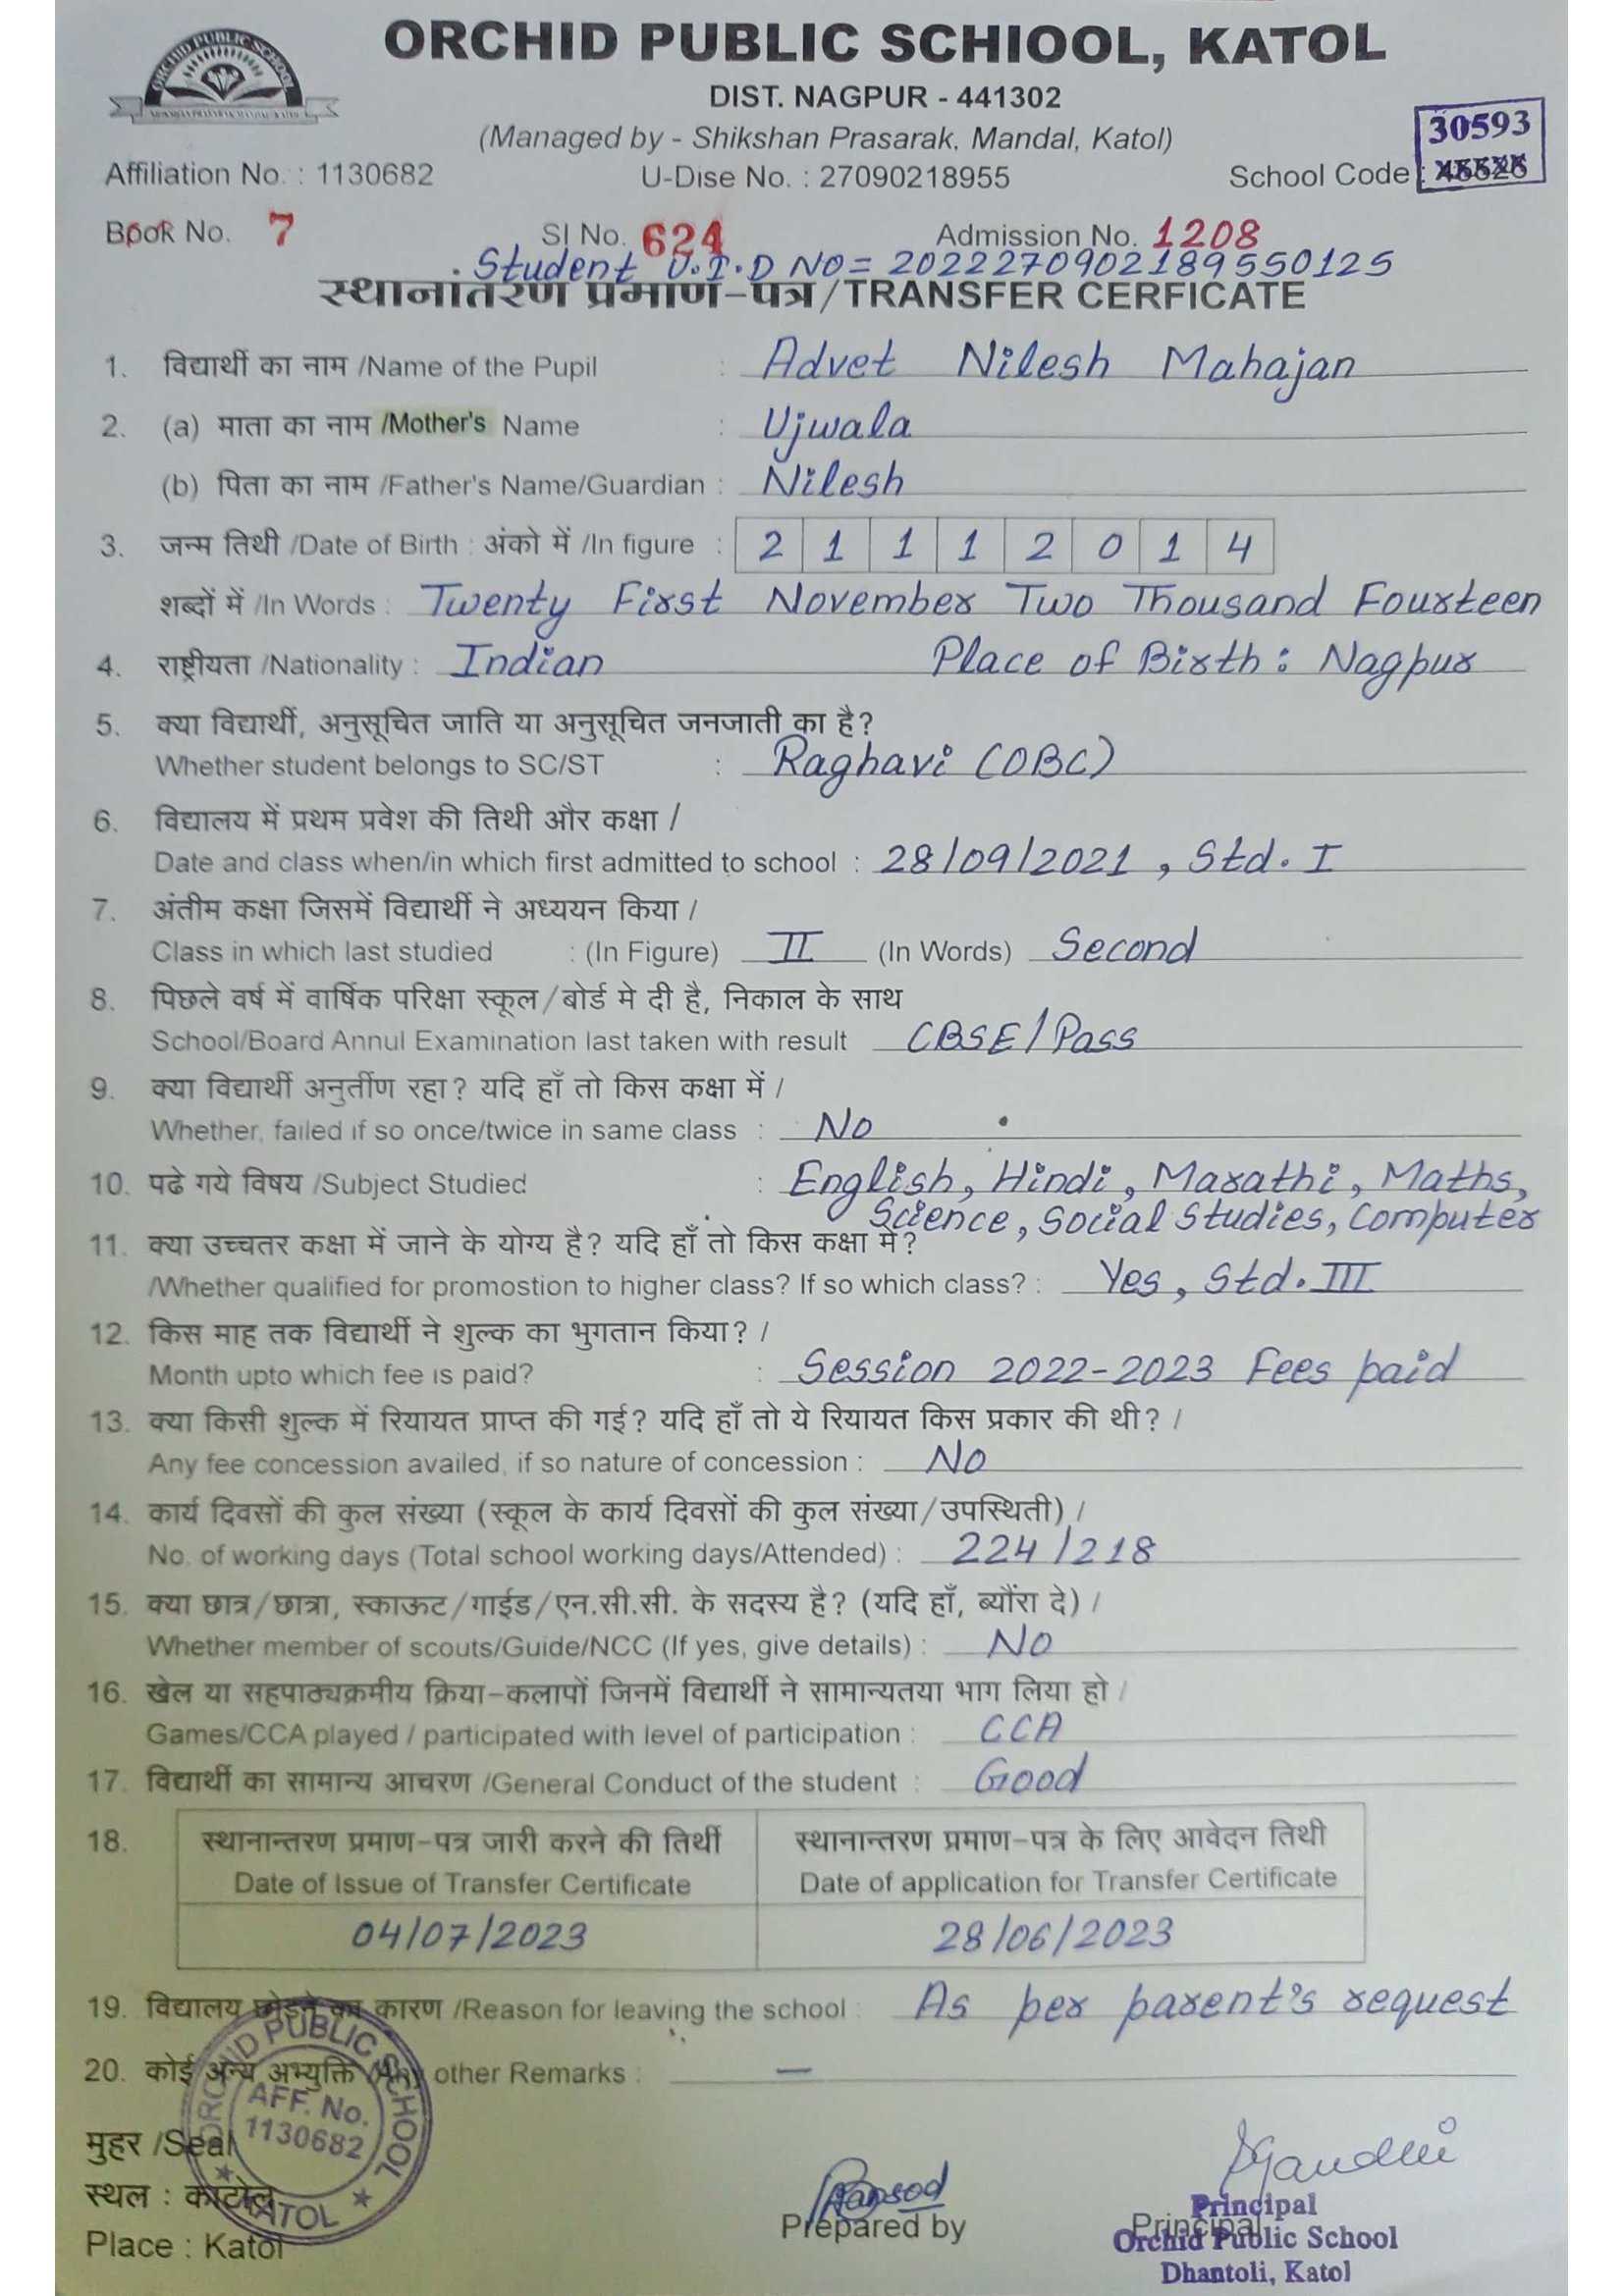 ORCHID PUBLIC SCHOOL
ORCHID PUBLIC SCHIOOL, KATOL
DIST. NAGPUR - 441302
(Managed by - Shikshan Prasarak, Mandal, Katol)
30593
Affiliation No. : 1130682 U-Dise No. : 27090218955 School Code :
Book No. 7 Sl No. 624 Admission No. 1208
Student U.I.D NO= 2022270902189550125
स्थानांतरण प्रमाण-पत्र/TRANSFER CERFICATE
1. विद्यार्थी का नाम /Name of the Pupil : Advet Nilesh Mahajan
2. (a) माता का नाम /Mother's Name : Ujwala
(b) पिता का नाम /Father's Name/Guardian : Nilesh
3. जन्म तिथी /Date of Birth : अंको में /In figure : 2 1 1 1 2 0 1 4
शब्दों में /In Words : Twenty First November Two Thousand Fourteen
4. राष्ट्रीयता /Nationality : Indian Place of Birth : Nagpur
5. क्या विद्यार्थी, अनुसूचित जाति या अनुसूचित जनजाती का है?
Whether student belongs to SC/ST : Raghavi (OBC)
6. विद्यालय में प्रथम प्रवेश की तिथी और कक्षा /
Date and class when/in which first admitted to school : 28/09/2021, Std. I
7. अंतीम कक्षा जिसमें विद्यार्थी ने अध्ययन किया /
Class in which last studied : (In Figure) II (In Words) Second
8. पिछले वर्ष में वार्षिक परिक्षा स्कूल/बोर्ड मे दी है, निकाल के साथ
School/Board Annul Examination last taken with result CBSE/Pass
9. क्या विद्यार्थी अनुर्तीण रहा? यदि हाँ तो किस कक्षा में /
Whether, failed if so once/twice in same class : No
10. पढे गये विषय /Subject Studied : English, Hindi, Marathi, Maths,
Science, Social Studies, Computer
11. क्या उच्चतर कक्षा में जाने के योग्य है? यदि हाँ तो किस कक्षा में?
/Whether qualified for promostion to higher class? If so which class? : Yes, Std. III
12. किस माह तक विद्यार्थी ने शुल्क का भुगतान किया? /
Month upto which fee is paid? : Session 2022-2023 Fees paid
13. क्या किसी शुल्क में रियायत प्राप्त की गई? यदि हाँ तो ये रियायत किस प्रकार की थी? /
Any fee concession availed, if so nature of concession : No
14. कार्य दिवसों की कुल संख्या (स्कूल के कार्य दिवसों की कुल संख्या/उपस्थिती) /
No. of working days (Total school working days/Attended) : 224/218
15. क्या छात्र/छात्रा, स्काऊट/गाईड/एन.सी.सी. के सदस्य है? (यदि हाँ, ब्यौंरा दे) /
Whether member of scouts/Guide/NCC (If yes, give details) : No
16. खेल या सहपाठ्यक्रमीय क्रिया-कलापों जिनमें विद्यार्थी ने सामान्यतया भाग लिया हो /
Games/CCA played / participated with level of participation : CCA
17. विद्यार्थी का सामान्य आचरण /General Conduct of the student : Good
18. स्थानान्तरण प्रमाण-पत्र जारी करने की तिर्थी स्थानान्तरण प्रमाण-पत्र के लिए आवेदन तिथी
Date of Issue of Transfer Certificate Date of application for Transfer Certificate
04/07/2023 28/06/2023
19. विद्यालय छोड़ने का कारण /Reason for leaving the school : As per parent's request
20. कोई अन्य अभ्युक्ति /Any other Remarks : —
ORCHID PUBLIC SCHOOL
AFF. No.
1130682
KATOL
मुहर /Seal
स्थल : काटोल
Place : Katol
Prepared by
Principal
Principal
Orchid Public School
Dhantoli, Katol